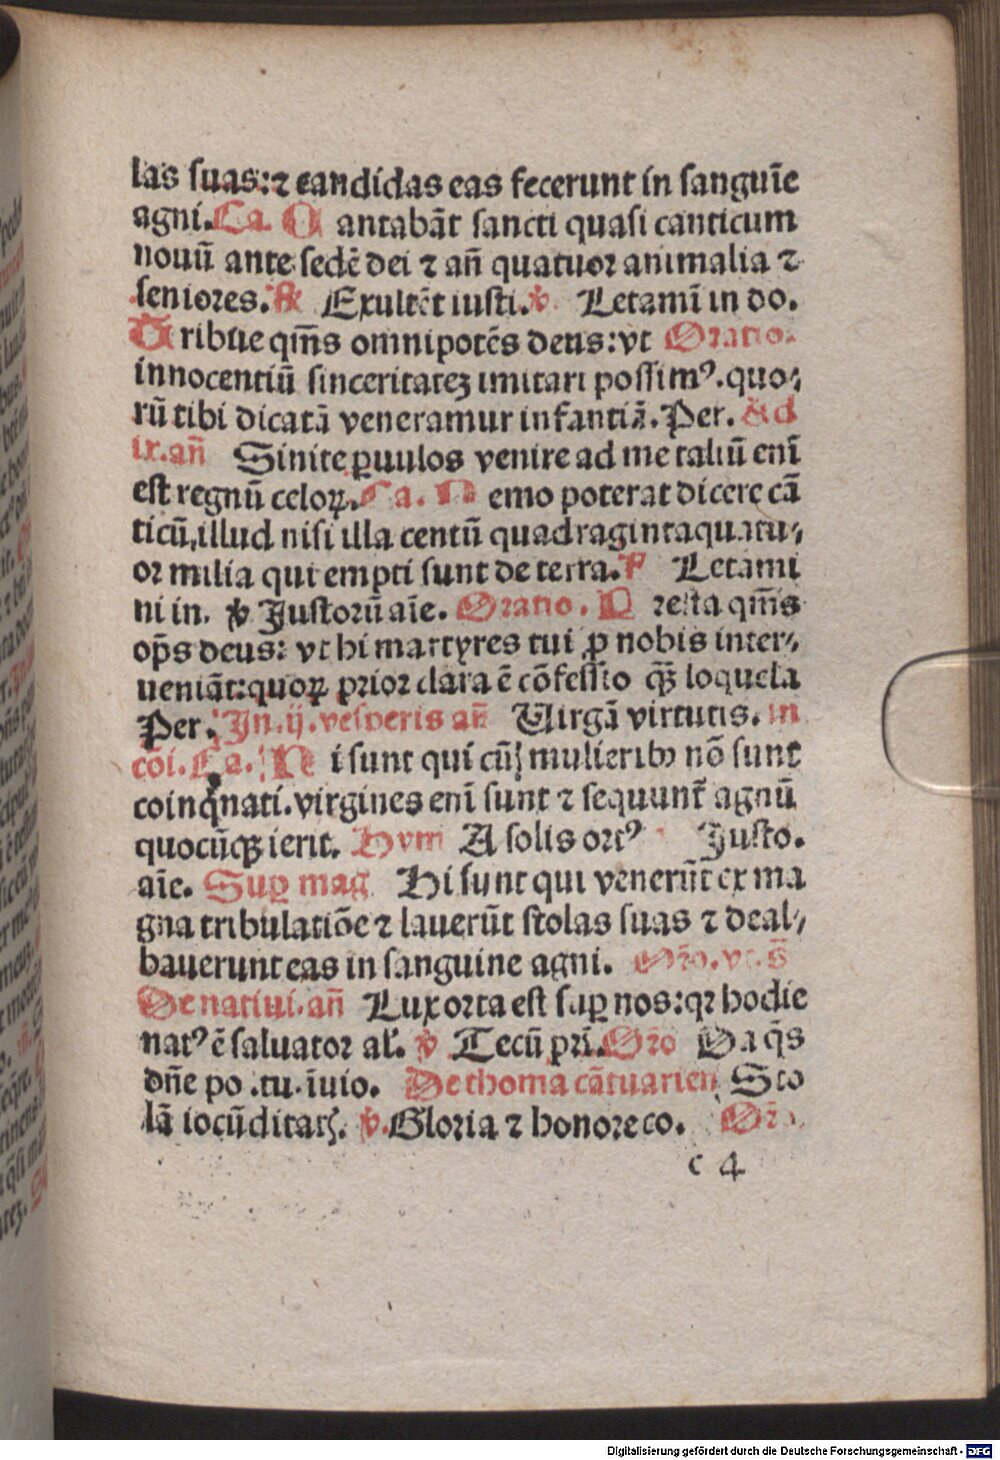 las suas: ⁊ candidas eas fecerunt in sanguīe
agni. Ca. C antabāt sancti quasi canticum
nouū ante sedē dei ⁊ añ quatuor animalia ⁊
seniores. ℟ Exultēt iusti. ℣ Letamī in do.
T ribue qm̄s omnipotēs deus: vt Oratio.
innocentiū sinceritatē imitari possimꝰ. quo⸗
rū tibi dicatā veneramur infantiā. Per. Ad
ix. añ Sinite ꝑuulos venire ad me taliū enī
est regnū celoꝝ. Ca. N emo poterat dicere cā
ticū, illud nisi illa centū quadragintaquatu⸗
or milia qui empti sunt de terra. ℟ Letami
ni in. ℣ Iustorū aīe. Oratio. P resta qm̄s
op̄s deus: vt hi martyres tui ꝓ nobis inter⸗
ueniāt: quoꝝ prior clara ē cōfessio qꝫ̄ loquela
Per. In .ij. vesperis añ Virgā virtutis. in
cōi. Ca. H i sunt qui cū mulieribꝰ nō sunt
coinq̄nati. virgines enī sunt ⁊ sequunt̄ agnū
quocūqꝫ ierit. Hym A solis ortꝰ Iusto.
aīe. Suꝑ mag Hi sunt qui venerūt ex ma
gna tribulatiōe ⁊ lauerūt stolas suas ⁊ deal⸗
bauerunt eas in sanguine agni. Oro. vt. s̄
De natiui. añ Lux orta est suꝑ nos: qꝛ hodie
natꝰ ē saluator al̄. ℣ Tecū pri. Oro Da q̄s
dn̄e po .tu. īuio. De thoma cātuarien Sto
lā iocūditat̄. ℣. Gloria ⁊ honore co. Or̄
c 4
Digitalisierung gefördert durch die Deutsche Forschungsgemeinschaft - DFG